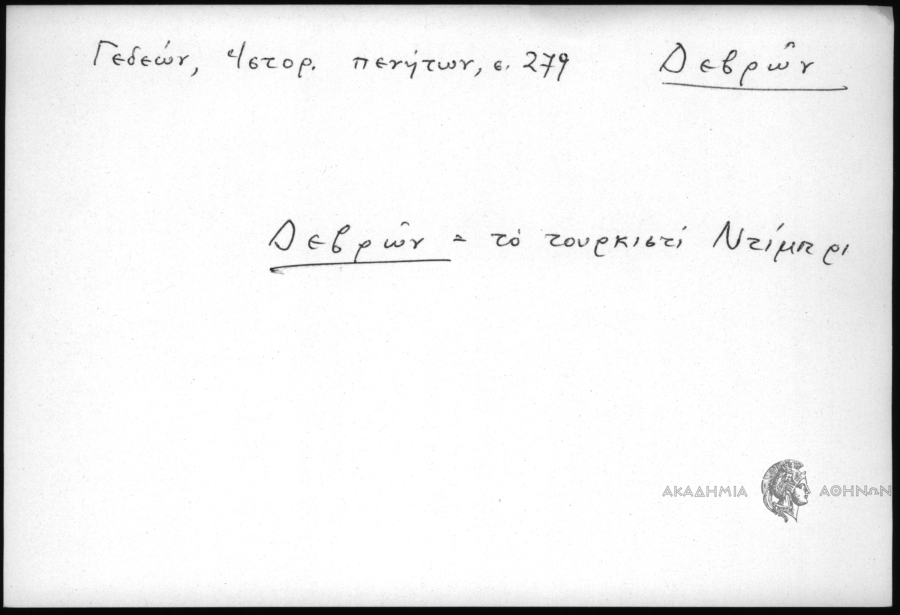 Γεδεών, Ἱστορ. πενήτων, σ. 279 Δεβρῶν
Δεβρῶν = τὸ τουρκιστί Ντίμπρι
ΑΚΑΔΗΜΙΑ ΑΘΗΝΩΝ